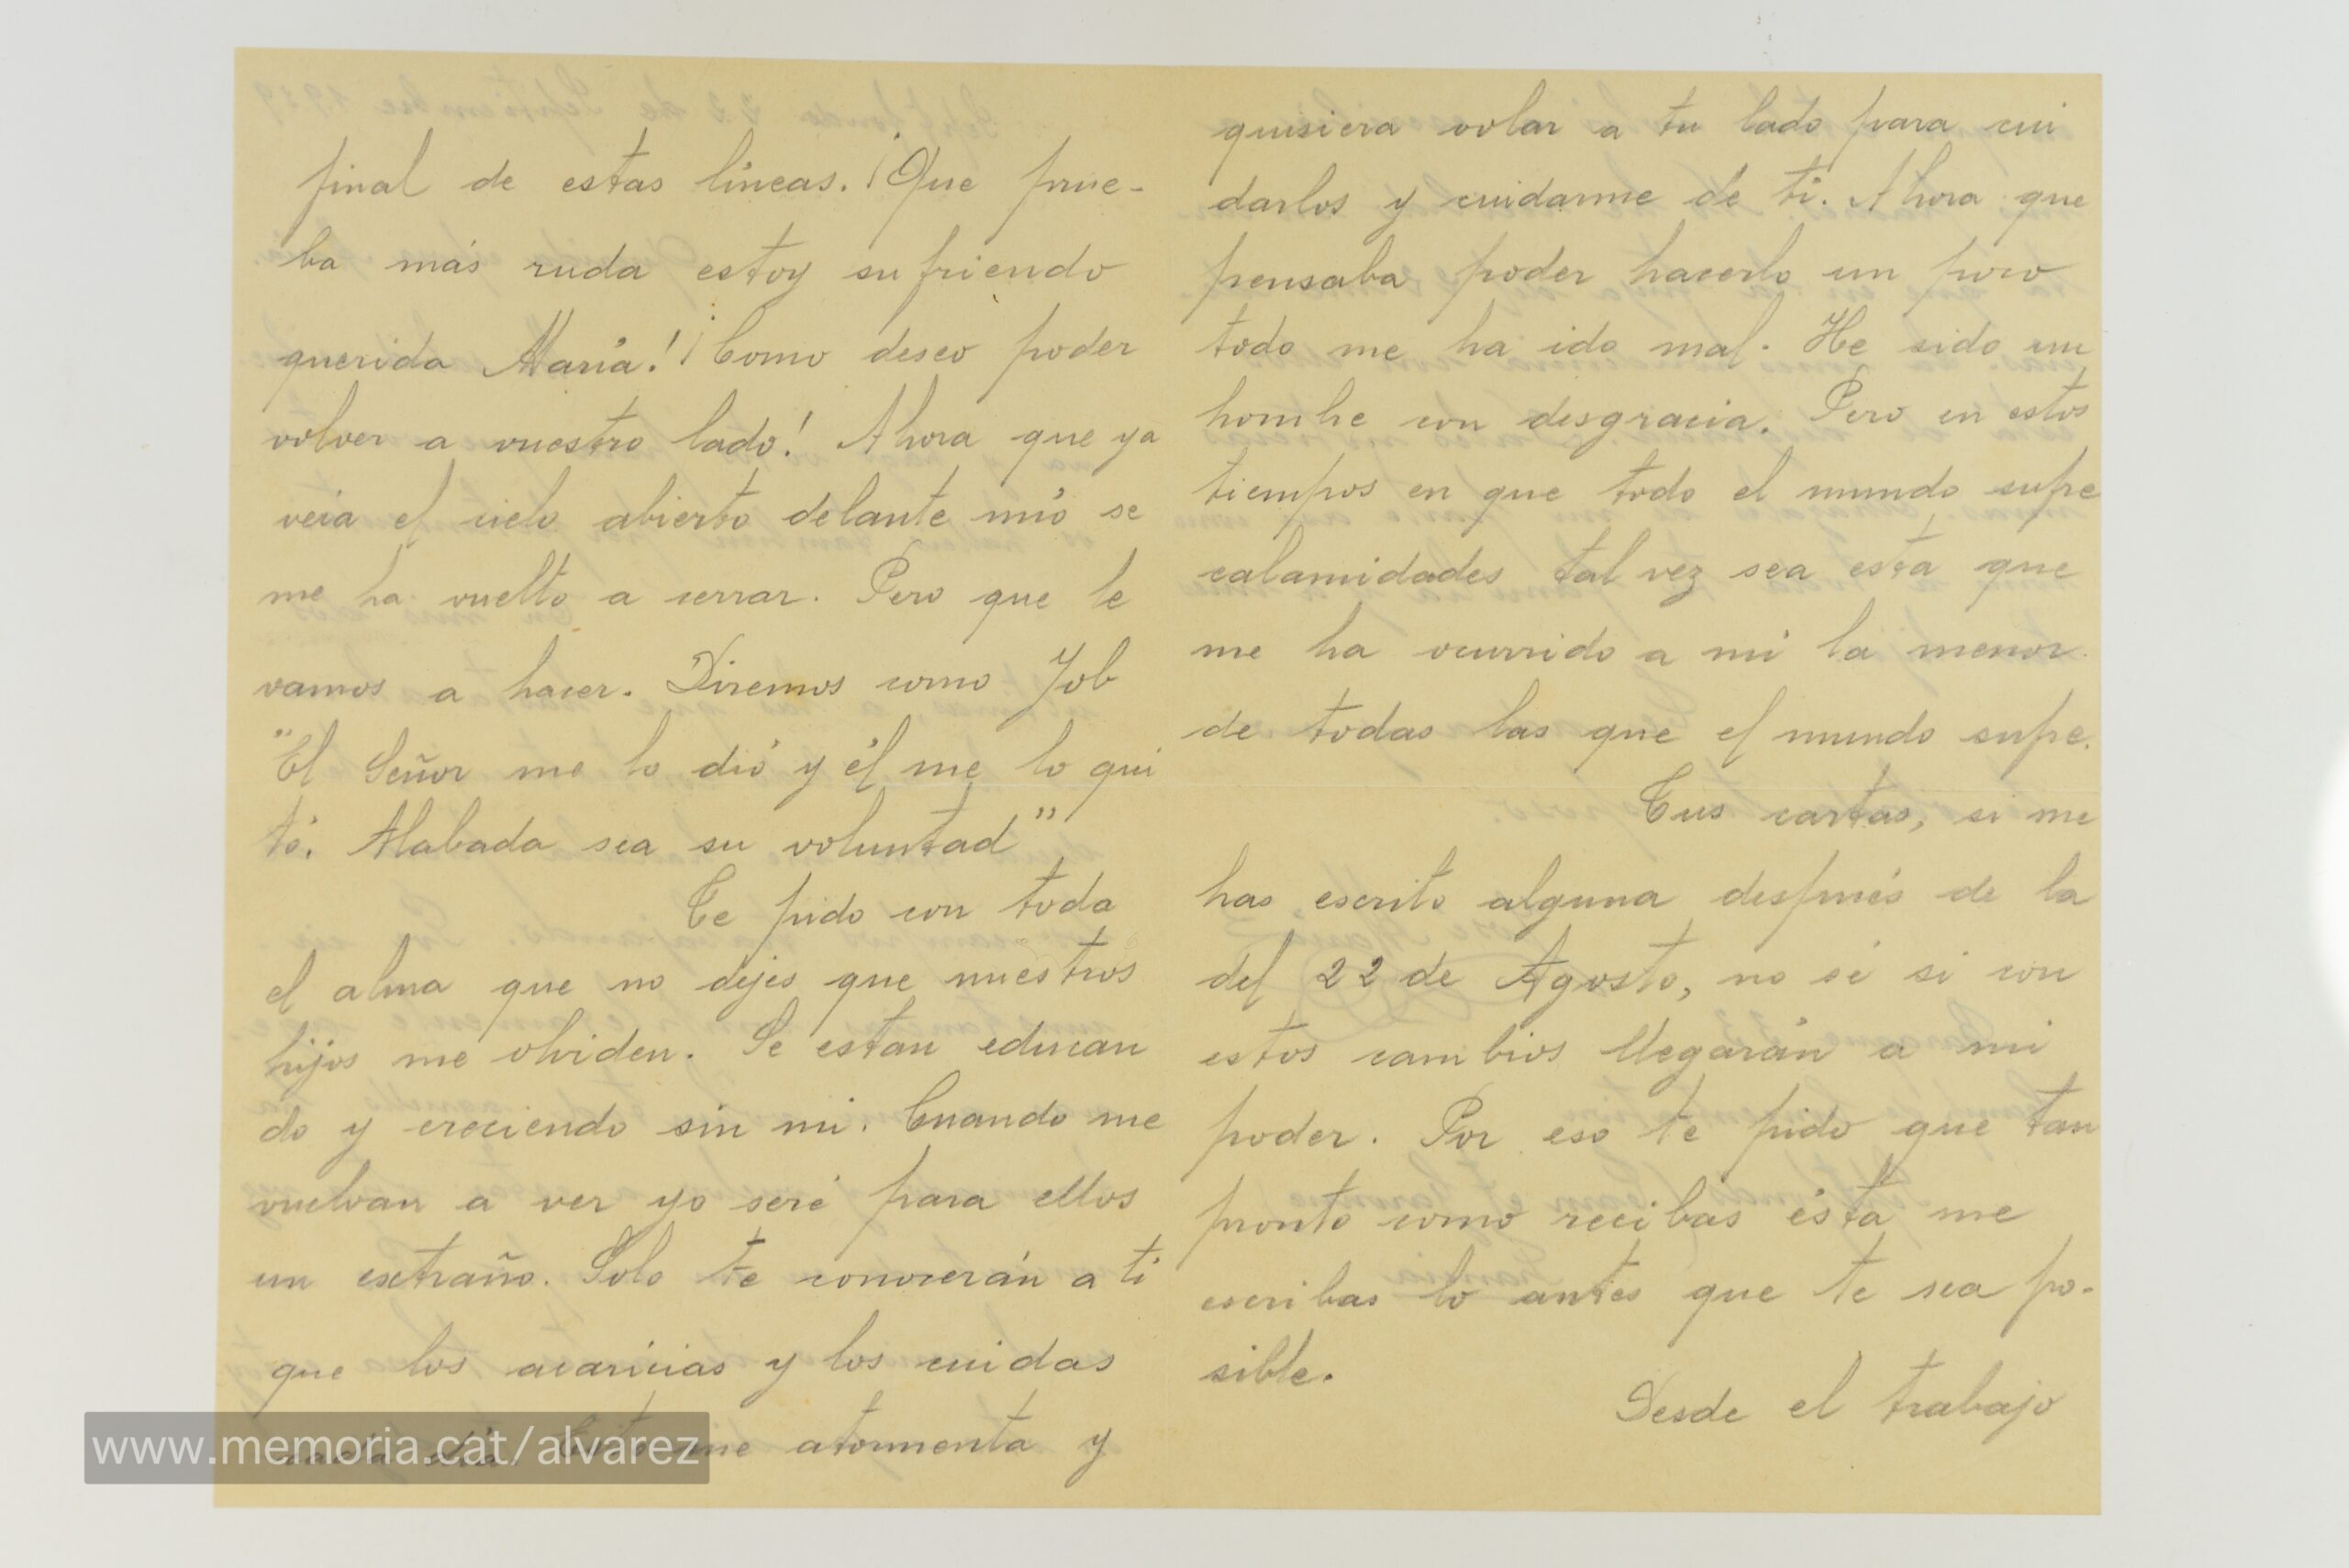 final de estas líneas. ¡Que prue-
ba más ruda estoy sufriendo
querida María! ¡Como deseo poder
volver a vuestro lado! Ahora que ya
veía el cielo abierto delante mío se
me ha vuelto a cerrar. Pero que le
vamos a hacer. Diremos como Job
"El Señor me lo dió y él me lo qui
tó. Alabada sea su voluntad"
Te pido con toda
el alma que no dejes que nuestros
hijos me olviden. Se estan educan
do y creciendo sin mi. Cuando me
vuelvan a ver yo seré para ellos
un extraño. Solo te conocerán a ti
que los acaricias y los cuidas
cada día. Esto me atormenta y
quisiera volar a tu lado para cui
darlos y cuidarme de ti. Ahora que
pensaba poder hacerlo un poco
todo me ha ido mal. He sido un
hombre con desgracia. Pero en estos
tiempos en que todo el mundo sufre
calamidades tal vez sea esta que
me ha ocurrido a mi la menor
de todas las que el mundo sufre.
Tus cartas, si me
has escrito alguna después de la
del 22 de Agosto, no sé si con
estos cambios llegarán a mi
poder. Por eso te pido que tan
pronto como recibas ésta me
escribas lo antes que te sea po-
sible.
Desde el trabajo
www.memoria.cat/alvarez